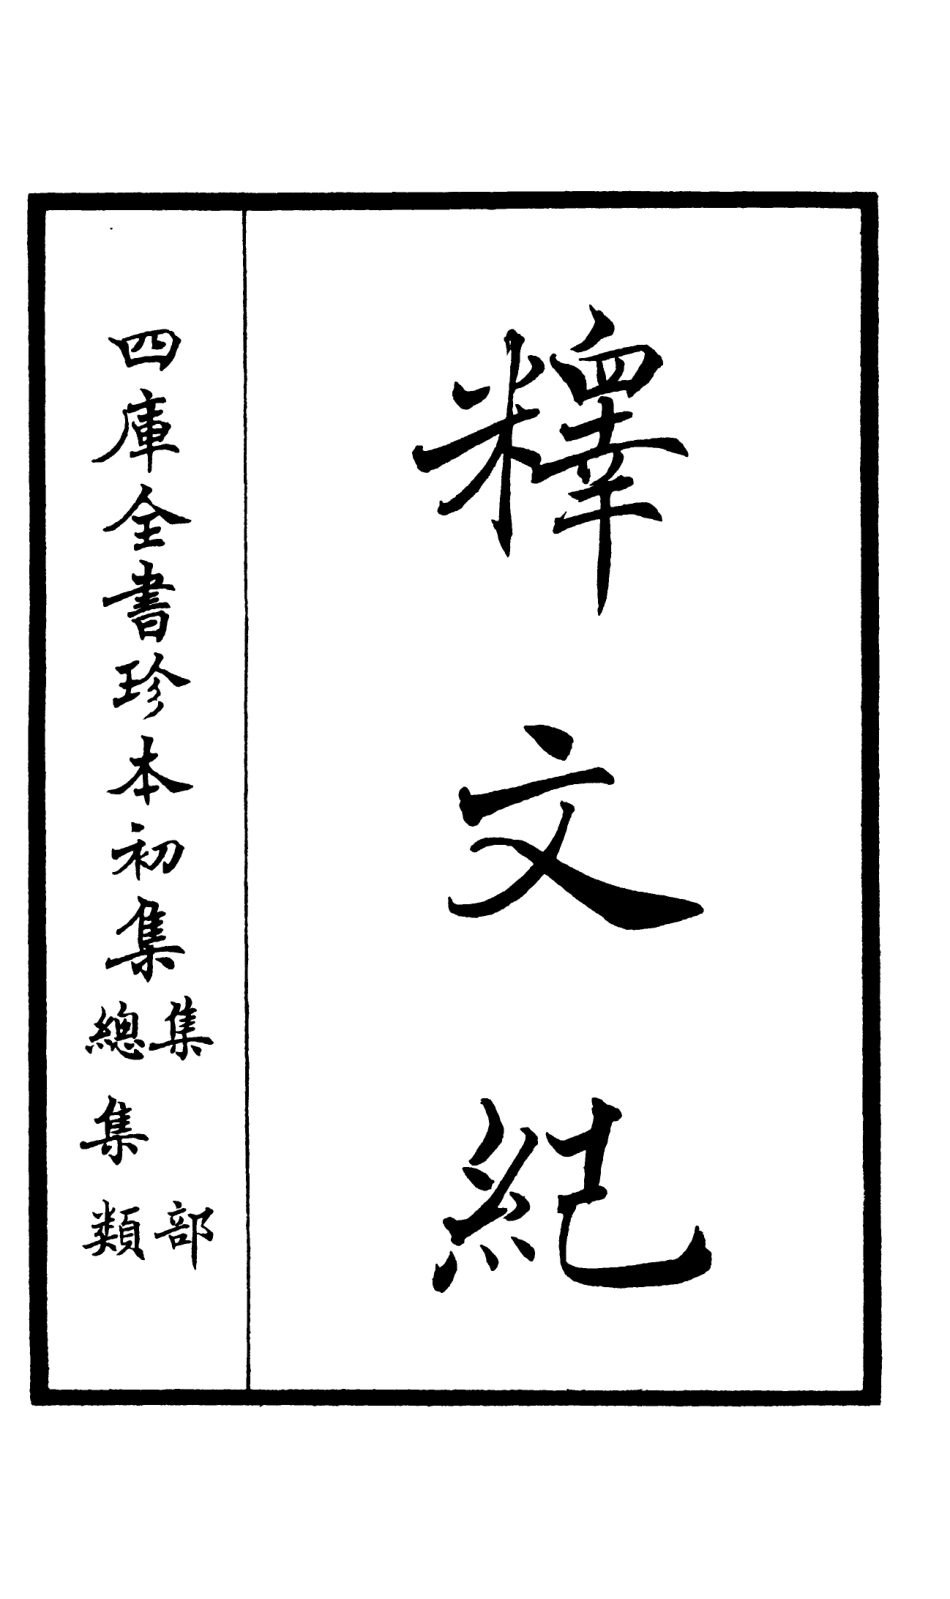 釋文紀
四庫全書珍本初集
集部
總集類